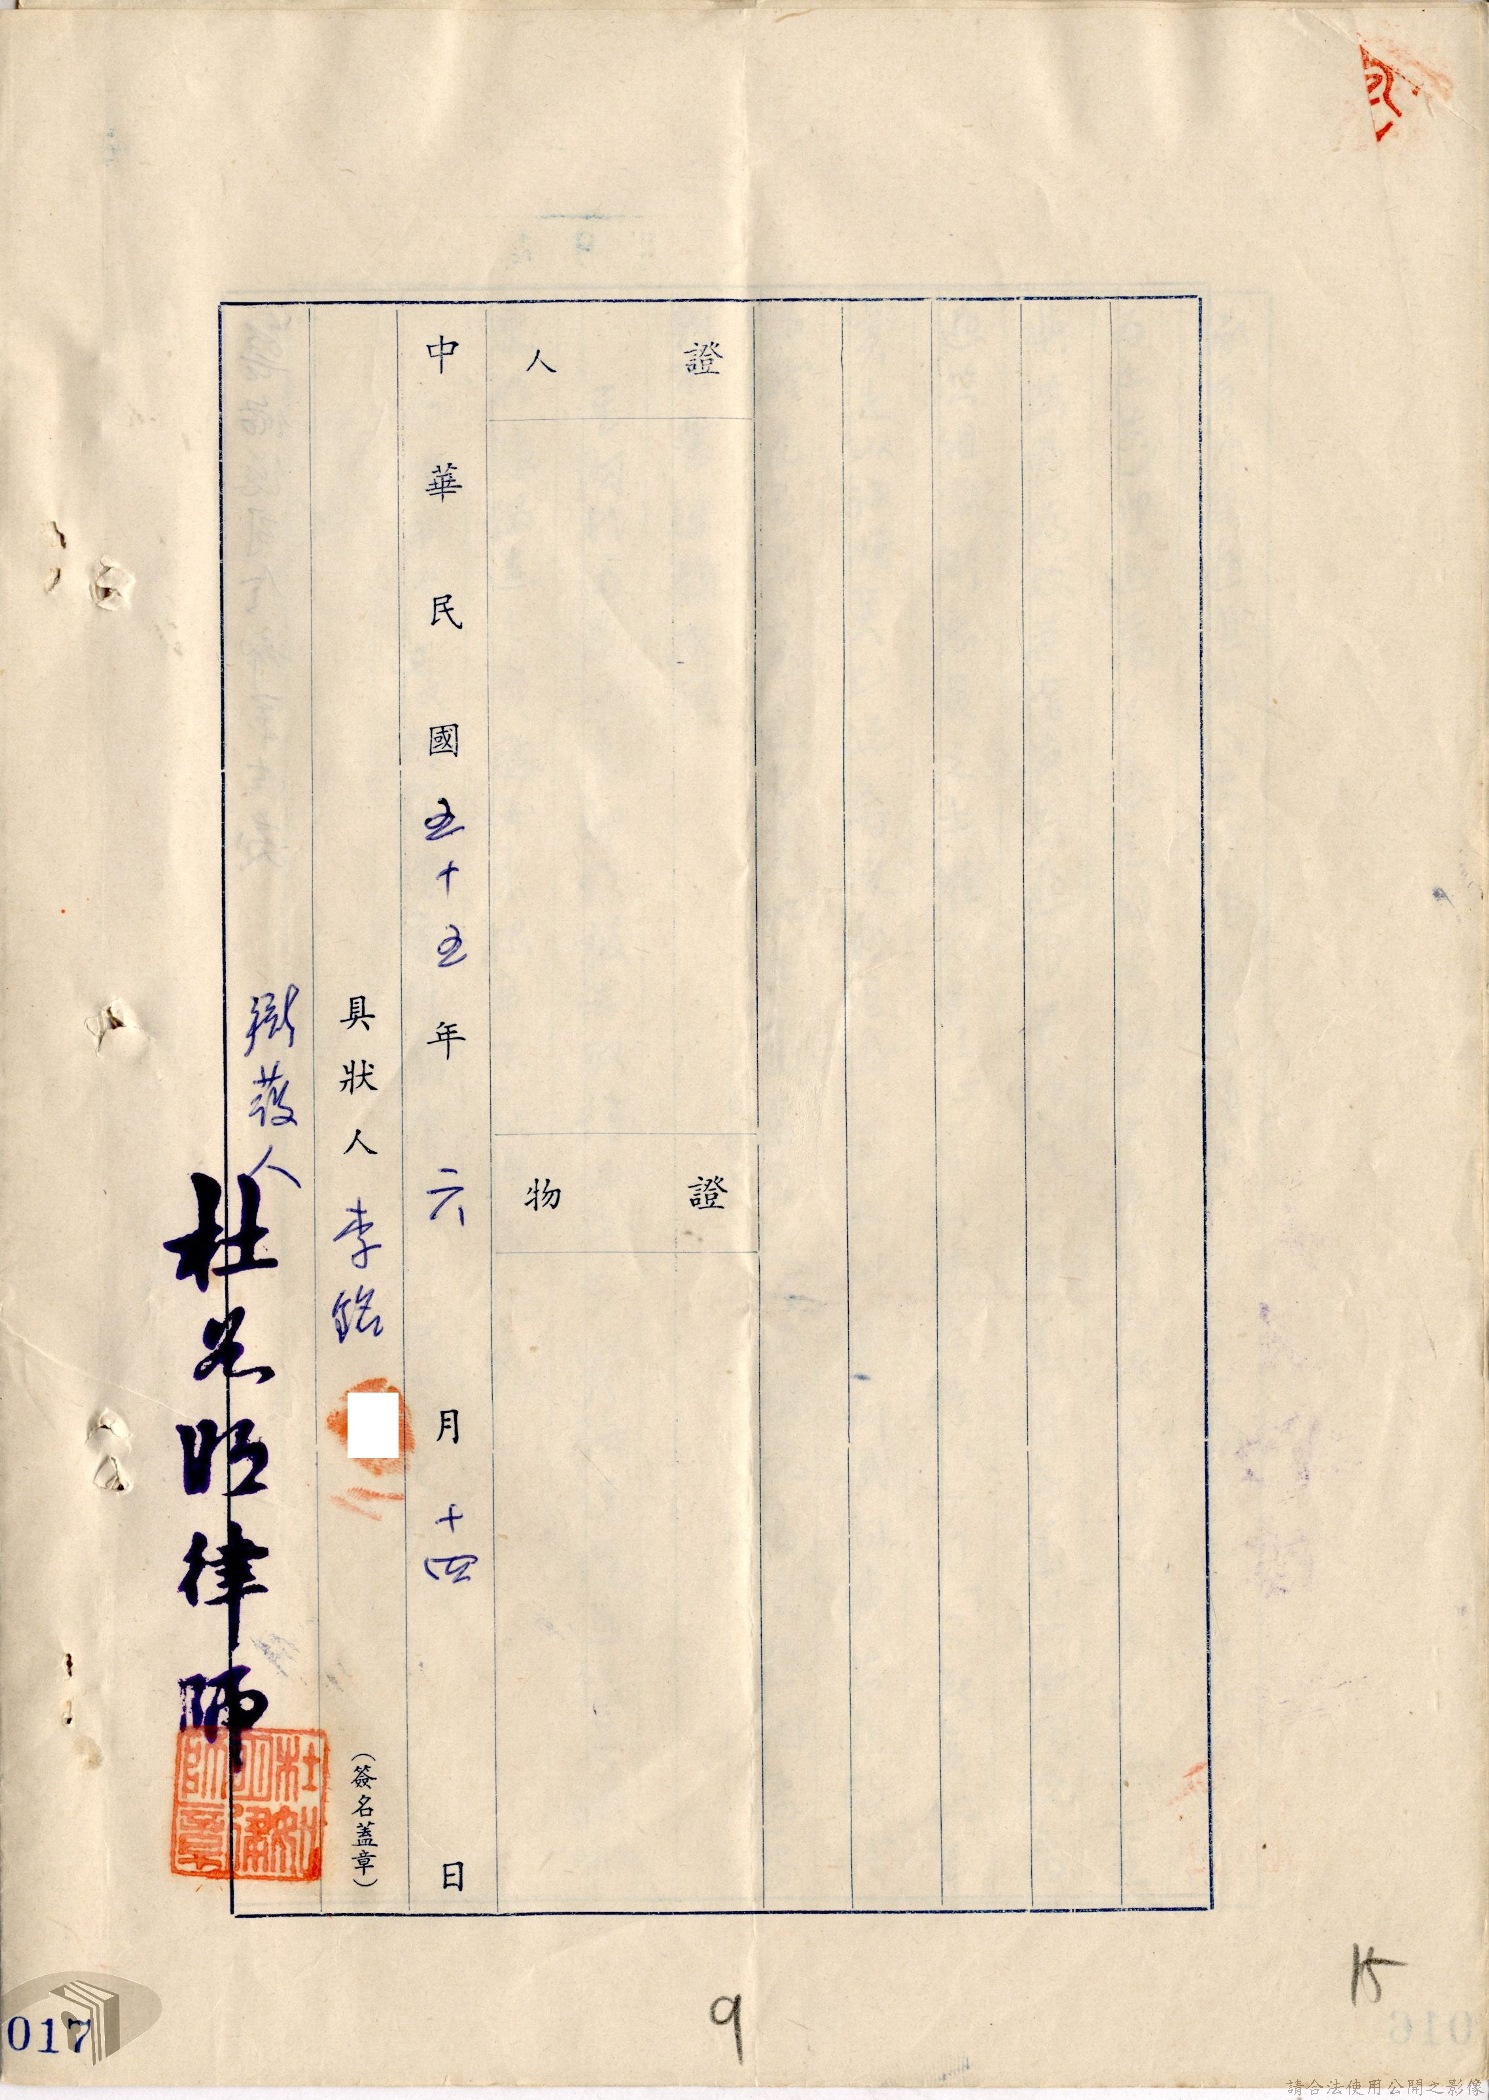 證人
證物
中華民國五十五年六月十四日
具狀人李銘
(簽名蓋章)
辯護人
律師
15
9
017
請合法使用公開之影像